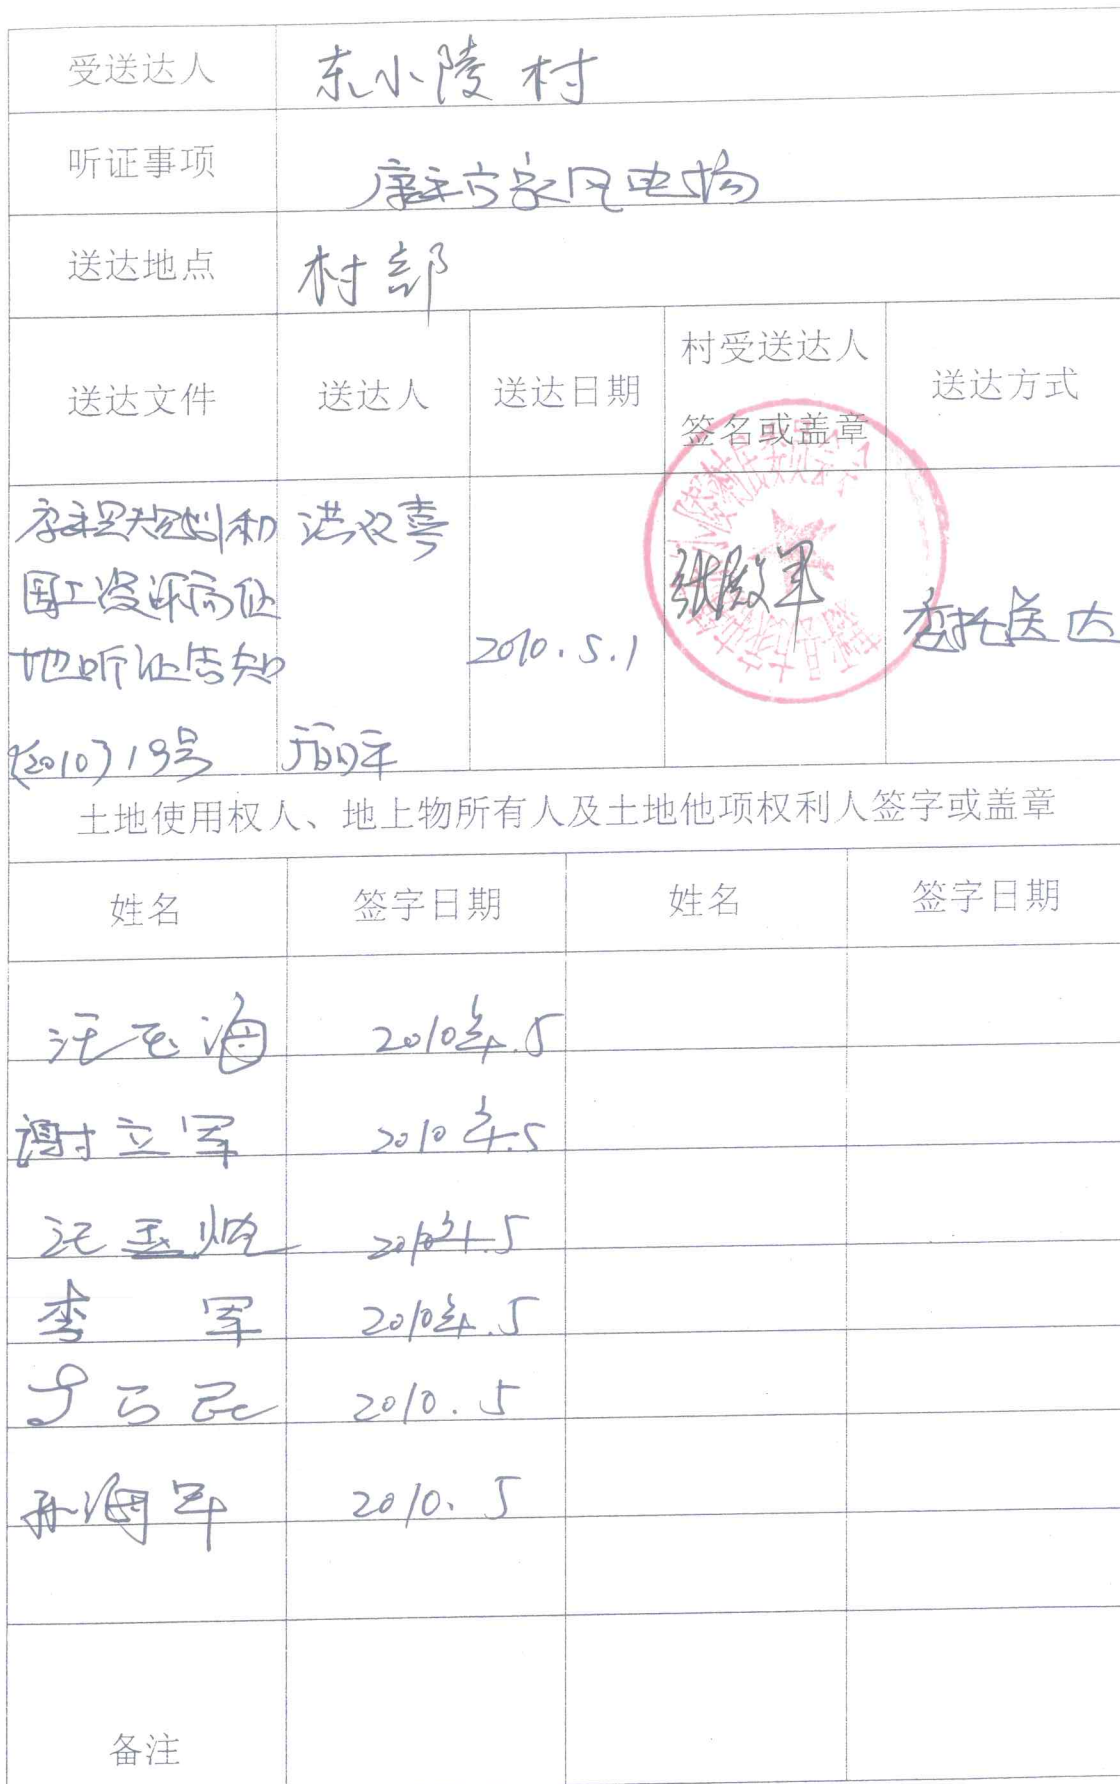 受送达人 东小陵村
听证事项 康平方家风电场
送达地点 村部
送达文件 送达人 送达日期 村受送达人 签名或盖章 送达方式
康平县规划和 洪双喜
国土资源局征
地听证告知 2010.5.1 张殿军 委托送达
(2010)19号
土地使用权人、地上物所有人及土地他项权利人签字或盖章
姓名 签字日期 姓名 签字日期
汪玉海 2010年.5
谢立军 2010年.5
汪玉 2010年.5
李军 2010年.5
2010.5
孙海军 2010.5
备注